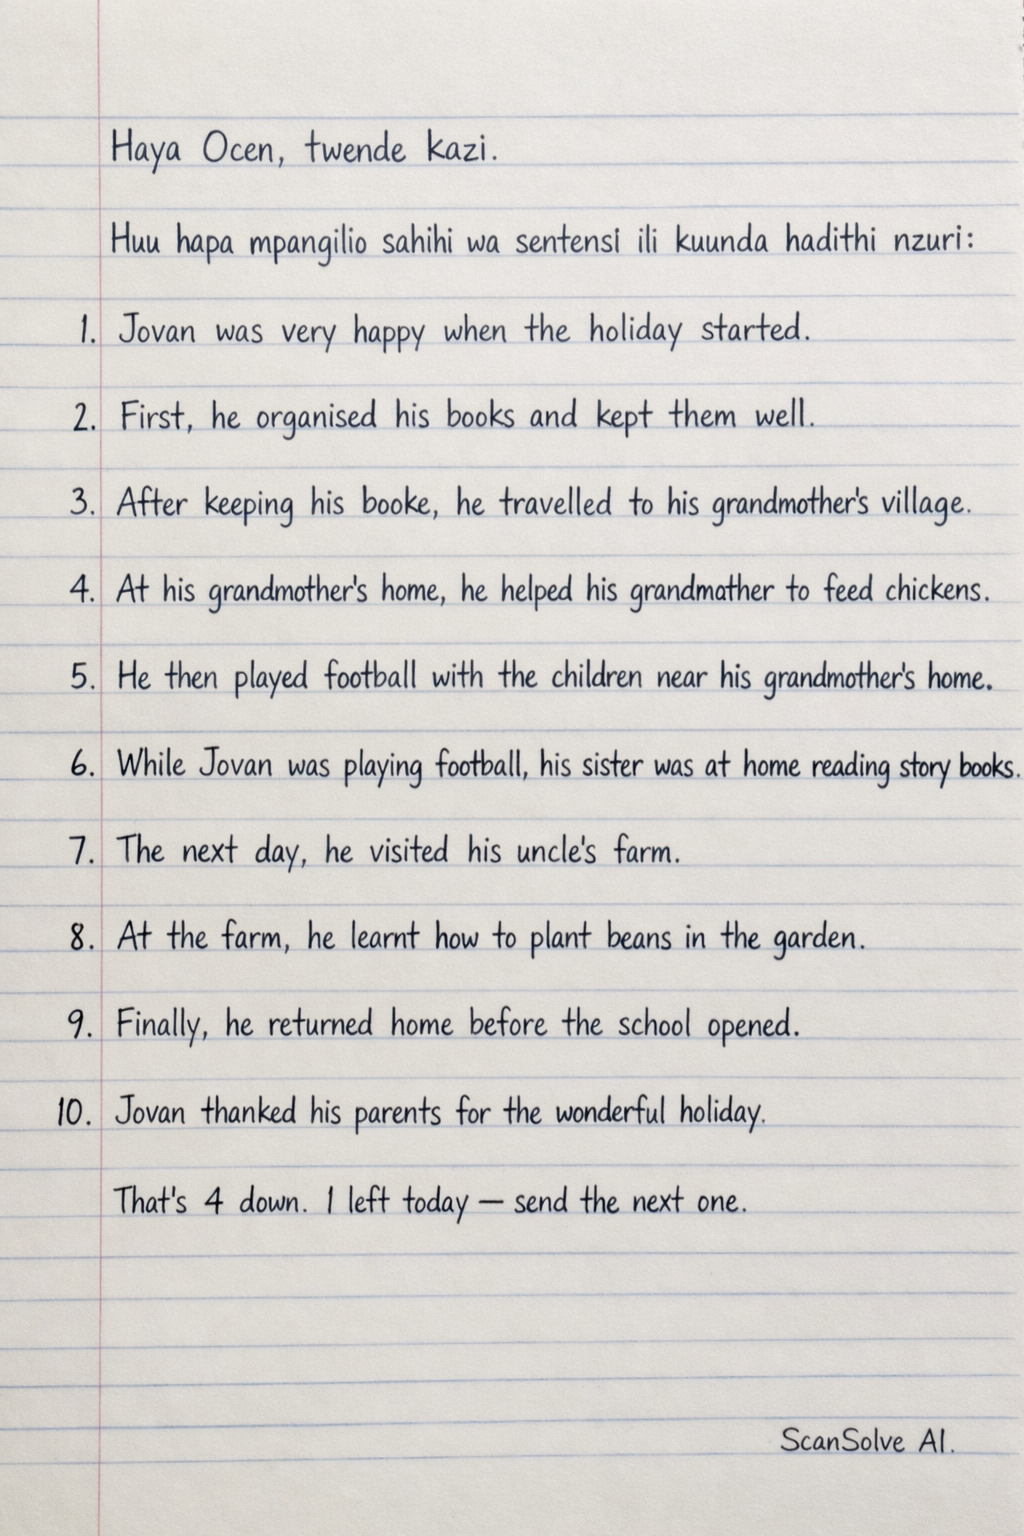 Haya Ocen, twende kazi.
Huu hapa mpangilio sahihi wa sentensi ili kuunda hadithi nzuri:
1. Jovan was very happy when the holiday started.
2. First, he organised his books and kept them well.
3. After keeping his booke, he travelled to his grandmother's village.
4. At his grandmother's home, he helped his grandmather to feed chickens.
5. He then played football with the children near his grandmother's home.
6. While Jovan was playing football, his sister was at home reading story books.
7. The next day, he visited his uncle's farm.
8. At the farm, he learnt how to plant beans in the garden.
9. Finally, he returned home before the school opened.
10. Jovan thanked his parents for the wonderful holiday.
That's 4 down. 1 left today — send the next one.
ScanSolve AI.